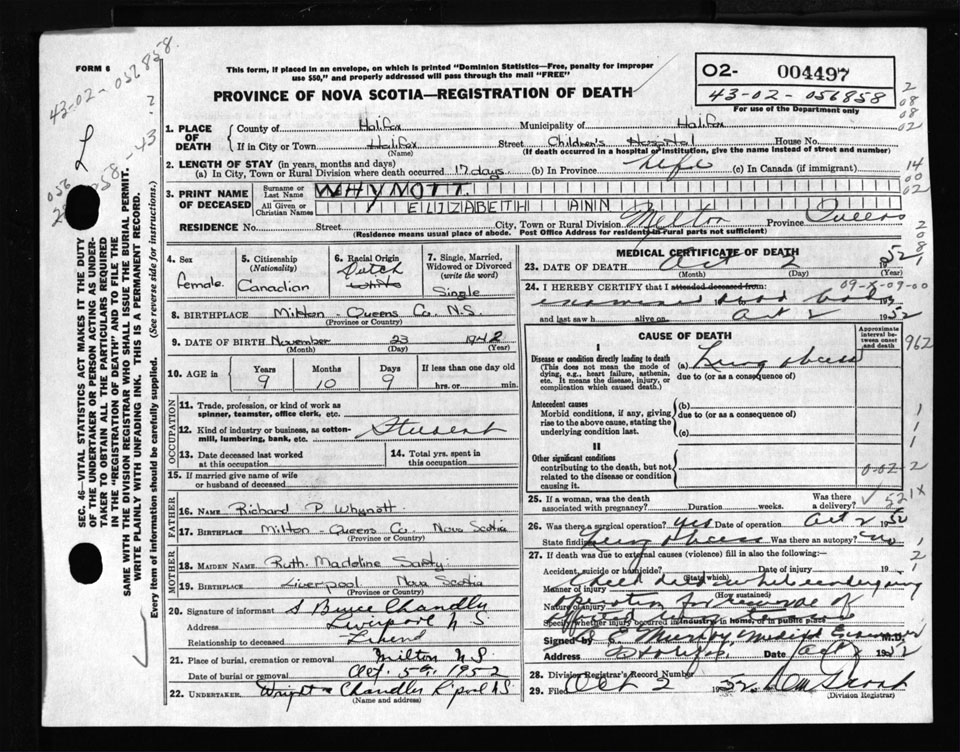 FORM 6
43-02-056858.
This form, if placed in an envelope, on which is printed "Dominion Statistics—Free, penalty for improper
use $50," and properly addressed will pass through the mail "FREE"
02- 004497
43-02-056858
For use of the Department only
PROVINCE OF NOVA SCOTIA—REGISTRATION OF DEATH
1. PLACE OF DEATH
County of Halifax Municipality of Halifax
If in City or Town Halifax Street Children's Hospital House No.
(Name) (If death occurred in a hospital or institution, give the name instead of street and number)
2. LENGTH OF STAY (in years, months and days)
(a) In City, Town or Rural Division where death occurred 17 days. (b) In Province Life (c) In Canada (if immigrant)
3. PRINT NAME OF DECEASED
Surname or Last Name WHYNOTT.
All Given or Christian Names ELIZABETH ANN
RESIDENCE No. Street City, Town or Rural Division Milton Province Queens
(Residence means usual place of abode. Post Office Address for residents in rural parts not sufficient)
4. Sex Female.
5. Citizenship (Nationality) Canadian
6. Racial Origin Dutch White
7. Single, Married, Widowed or Divorced (write the word) Single
8. BIRTHPLACE Milton - Queens Co. N.S.
(Province or Country)
9. DATE OF BIRTH November 23 1942
(Month) (Day) (Year)
10. AGE in Years 9 Months 10 Days 9 If less than one day old hrs. or min.
OCCUPATION
11. Trade, profession, or kind of work as spinner, teamster, office clerk, etc.
12. Kind of industry or business, as cotten-mill, lumbering, bank, etc. Student
13. Date deceased last worked at this occupation
14. Total yrs. spent in this occupation
15. If married give name of wife or husband of deceased
FATHER
16. NAME Richard P Whynott
17. BIRTHPLACE Milton - Queens Co. Nova Scotia
(Province or Country)
MOTHER
18. MAIDEN NAME Ruth Madeline
19. BIRTHPLACE Liverpool Nova Scotia
(Province or Country)
20. Signature of informant S Bruce Chandler
Address Liverpool N S
Relationship to deceased Friend
21. Place of burial, cremation or removal Milton N.S.
Date of burial or removal Oct. 5th, 1952
22. UNDERTAKER Wright & Chandler L'pool N.S
(Name and address)
MEDICAL CERTIFICATE OF DEATH
23. DATE OF DEATH Oct 2 52
(Month) (Day) (Year)
24. I HEREBY CERTIFY that I attended deceased from: 09-X-09-00
examined dead body
and last saw h alive on Oct 2 1952
CAUSE OF DEATH
Approximate interval between onset and death
I
Disease or condition directly leading to death
(This does not mean the mode of dying, e.g., heart failure, asthenia, etc. It means the disease, injury, or complication which caused death.)
(a) Lung abscess
due to (or as a consequence of)
Antecedent causes
Morbid conditions, if any, giving rise to the above cause, stating the underlying condition last.
(b)
due to (or as a consequence of)
(c)
II
Other significant conditions
contributing to the death, but not related to the disease or condition causing it.
0-02-2
25. If a woman, was the death associated with pregnancy? Duration weeks. Was there a delivery?
521X
26. Was there a surgical operation? yes Date of operation Oct 2 1952
State findings Lung abscess Was there an autopsy? no
27. If death was due to external causes (violence) fill in also the following:—
Accident, suicide or homicide? (State which) Date of injury 19
Manner of injury (How sustained) Child died while undergoing
Nature of injury operation for removal of
Specify whether injury occurred in industry, in home, or in public place
Signed by S E Murray Medical Examiner M.D.
Address Halifax Date Oct 2 1952
28. Division Registrar's Record Number
29. Filed Oct 2 1952
(Division Registrar)
SEC. 46—VITAL STATISTICS ACT MAKES IT THE DUTY
OF THE UNDERTAKER OR PERSON ACTING AS UNDER-
TAKER TO OBTAIN ALL THE PARTICULARS REQUIRED
IN THE "REGISTRATION OF DEATH" AND TO FILE THE
SAME WITH THE DIVISION REGISTRAR WHO SHALL ISSUE THE BURIAL PERMIT.
WRITE PLAINLY WITH UNFADING INK. THIS IS A PERMANENT RECORD.
Every item of information should be carefully supplied. (See reverse side for instructions).